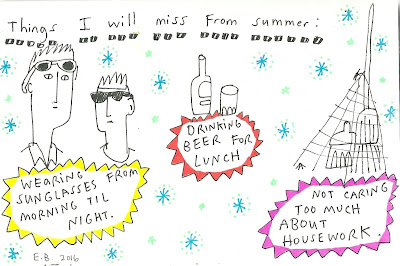 Things I will miss from summer:
WEARING
SUNGLASSES FROM
MORNING TIL
NIGHT.
DRINKING
BEER FOR
LUNCH
NOT CARING
TOO MUCH
ABOUT
HOUSEWORK.
E.B. 2016